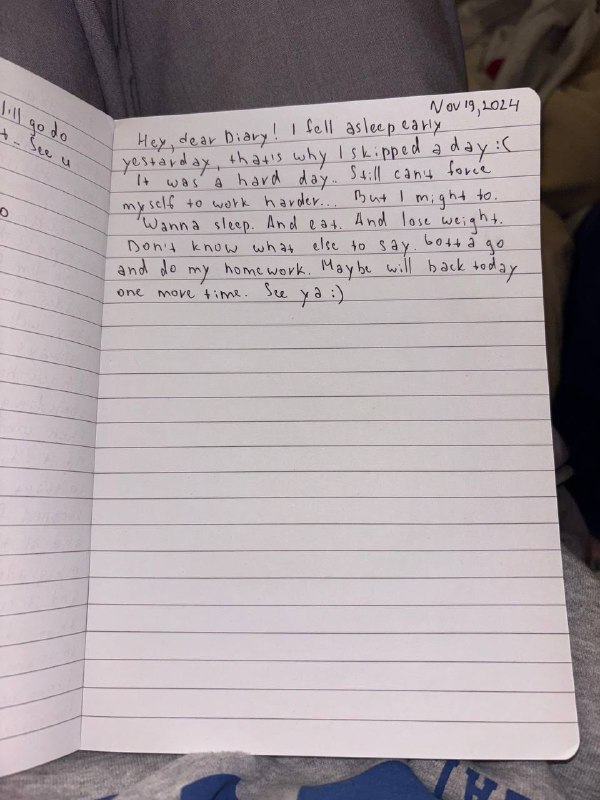 lill go do
t - See u
Nov 19, 2024
Hey, dear Diary! I fell asleep early
yestarday, that's why I skipped a day :(
It was a hard day.. Still can't force
myself to work harder... But I might to.
Wanna sleep. And eat. And lose weight.
Don't know what else to say. Gotta go
and do my homework. Maybe will back today
one more time. See ya :)